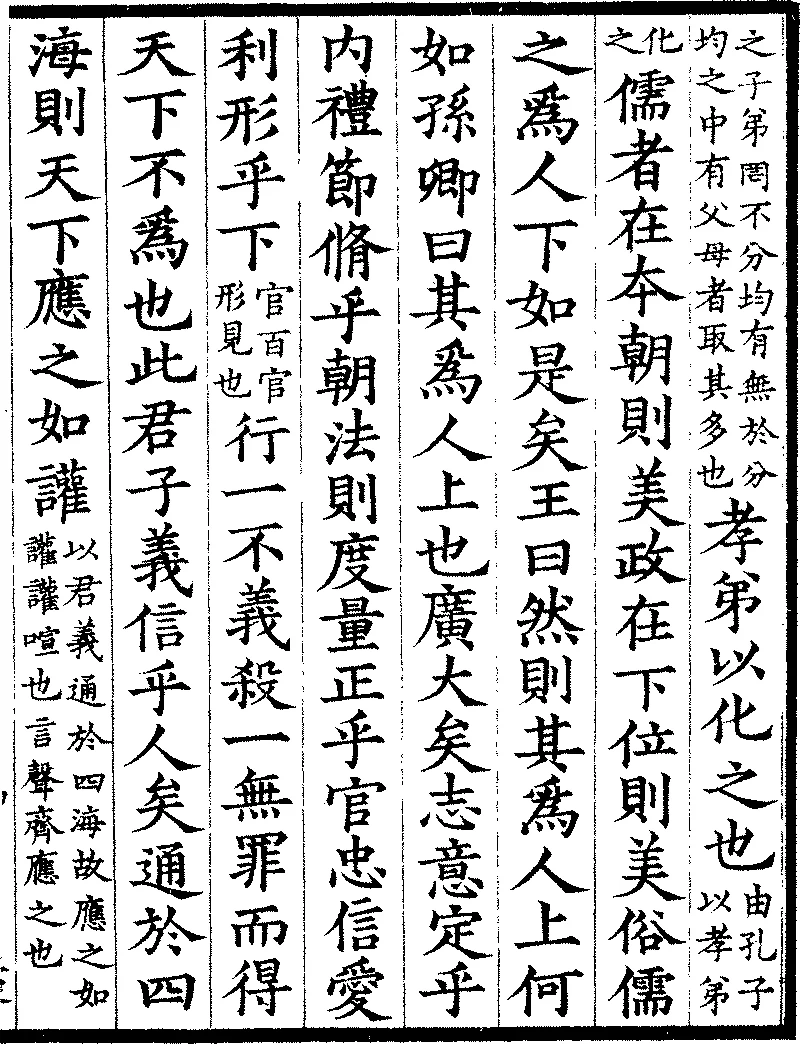 之子弟罔不分均有無於分均之中有父母者取其多也孝弟以化之也由孔子以孝弟
化之儒者在本朝則美政在下位則美俗儒
之爲人下如是矣王曰然則其爲人上何
如孫卿曰其爲人上也廣大矣志意定乎
内禮節脩乎朝法則度量正乎官忠信愛
利形乎下官百官形見也行一不義殺一無罪而得
天下不爲也此君子義信乎人矣通於四
海則天下應之如讙以君義通於四海故應之如讙讙喧也言聲齊應之也